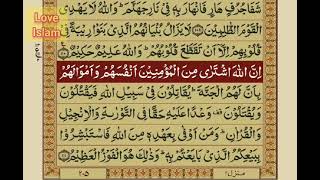 Love
Islam
شَفَا جُرُفٍ هَارٍ فَانْهَارَ بِهٖ فِیْ نَارِ جَهَنَّمَ ؕ وَاللّٰهُ لَا یَهْدِی
الْقَوْمَ الظّٰلِمِیْنَ لَا یَزَالُ بُنْیَانُهُمُ الَّذِیْ بَنَوْا رِیْبَةً فِیْ
قُلُوْبِهِمْ اِلَّاۤ اَنْ تَقَطَّعَ قُلُوْبُهُمْ ؕ وَاللّٰهُ عَلِیْمٌ حَكِیْمٌ
اِنَّ اللّٰهَ اشْتَرٰی مِنَ الْمُؤْمِنِیْنَ اَنْفُسَهُمْ وَاَمْوَالَهُمْ
بِاَنَّ لَهُمُ الْجَنَّةَ ؕ یُقَاتِلُوْنَ فِیْ سَبِیْلِ اللّٰهِ فَیَقْتُلُوْنَ
وَیُقْتَلُوْنَ وَعْدًا عَلَیْهِ حَقًّا فِی التَّوْرٰىةِ وَالْاِنْجِیْلِ
وَالْقُرْاٰنِ ؕ وَمَنْ اَوْفٰی بِعَهْدِهٖ مِنَ اللّٰهِ فَاسْتَبْشِرُوْا
بِبَیْعِكُمُ الَّذِیْ بَایَعْتُمْ بِهٖ ؕ وَذٰلِكَ هُوَ الْفَوْزُ الْعَظِیْمُ
منزل ۲
۲۰۵